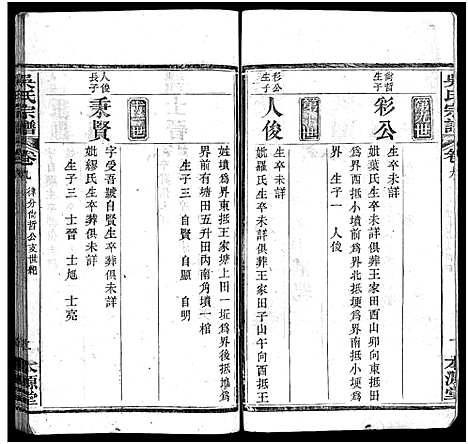 吳氏宗譜
卷九
一
本源堂
尚哲生子
彩公
生卒未詳
妣葉氏生卒未詳俱葬王家田子山卯山酉向
界西抵小墳為界北抵小墳為
界 生子一 人俊
彩公生子
人俊
生卒未詳
妣羅氏生卒未詳俱葬王家田子山午向前為界南抵埂為界
姓墳為界東抵王家塘上田一坵為界後抵堆為
界前有塘田五升田內南角墳一棺
生子三 自賢 自顯 自明
人俊長子
秉賢
字受吾號自賢生卒葬俱未詳
妣繆氏生卒葬俱未詳
生子三 士晉 士旭 士亮
吳氏宗譜
卷九
律分尚哲公支世紀
本源堂